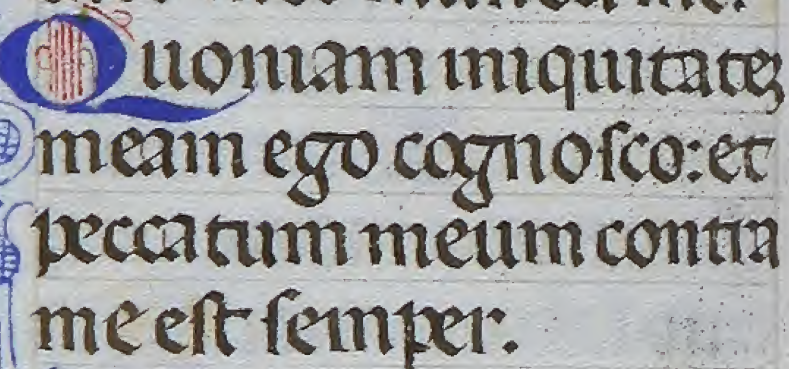 Quoniam iniquitatez
meam ego cognosco: et
peccatum meum contra
me est semper.